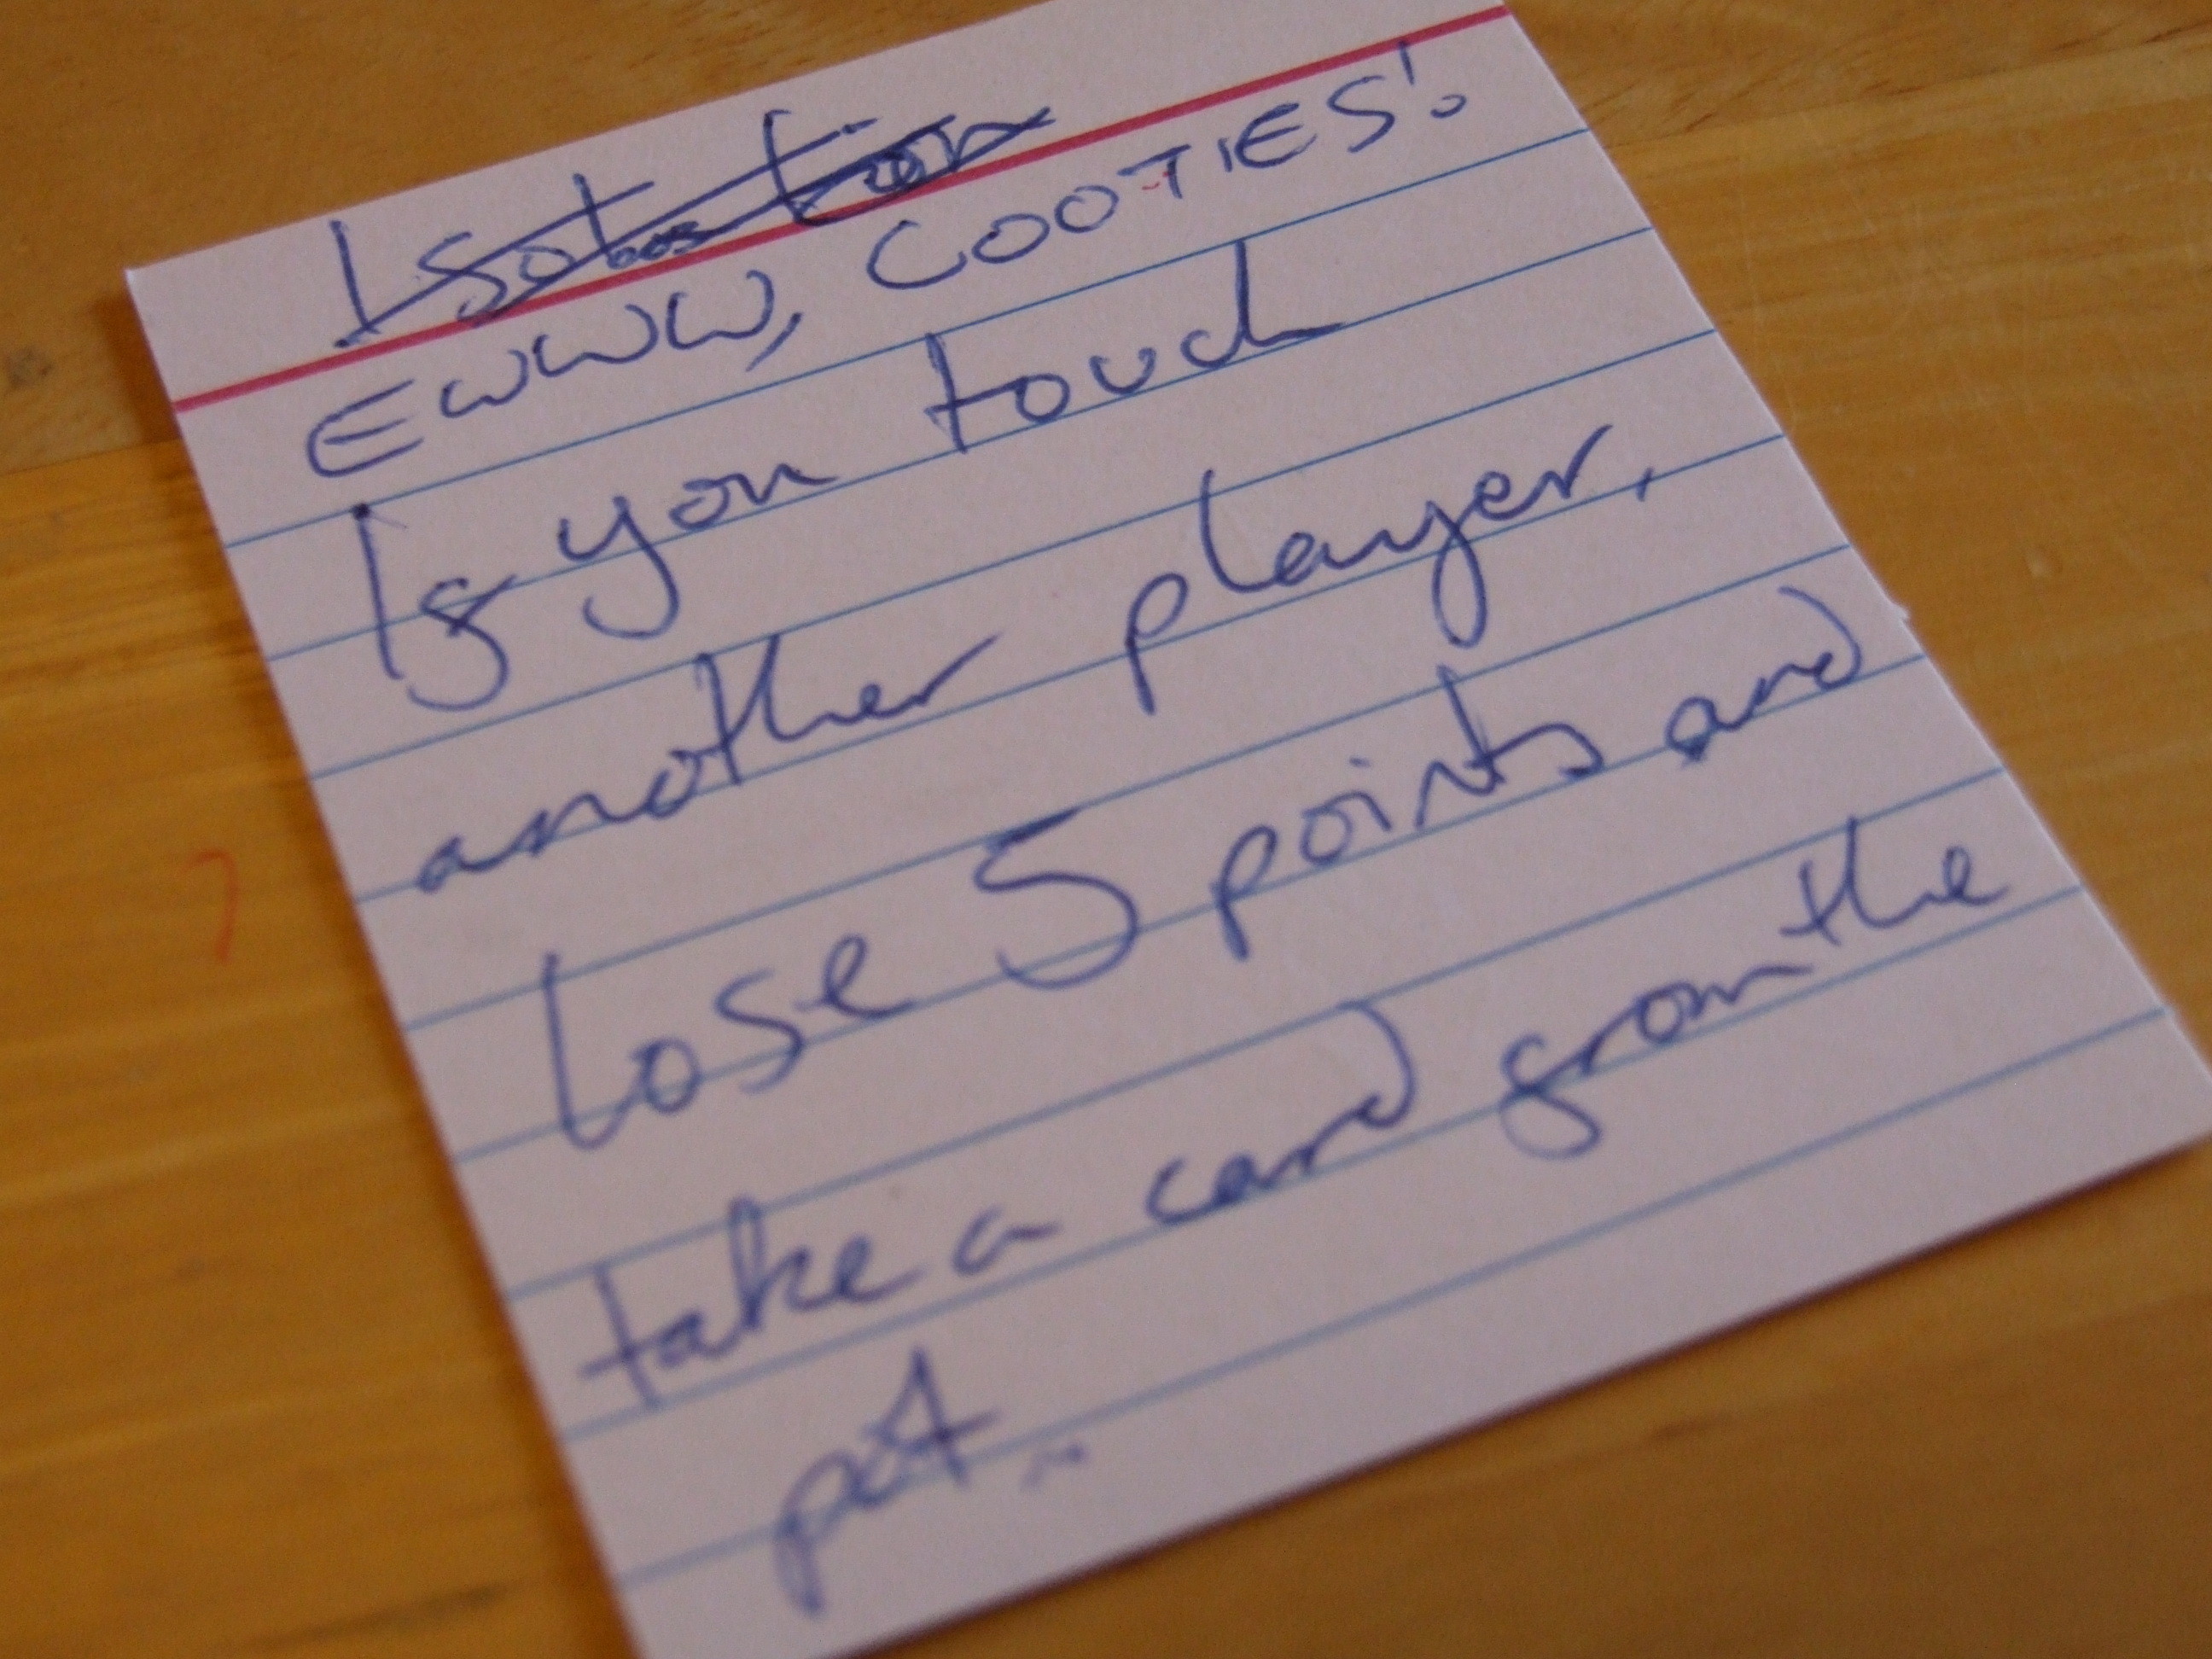 EWWW, COOTIES!
If you touch
another player,
lose 5 points and
take a card from the
pot.